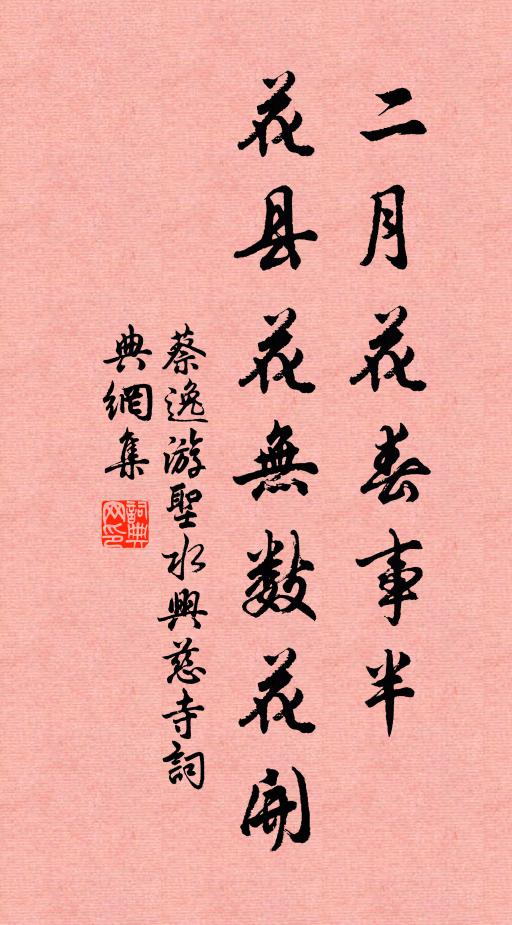 二月花春事半
花县花無数花開
蔡逸游聖水興慈寺詞
典網集
詞典網印